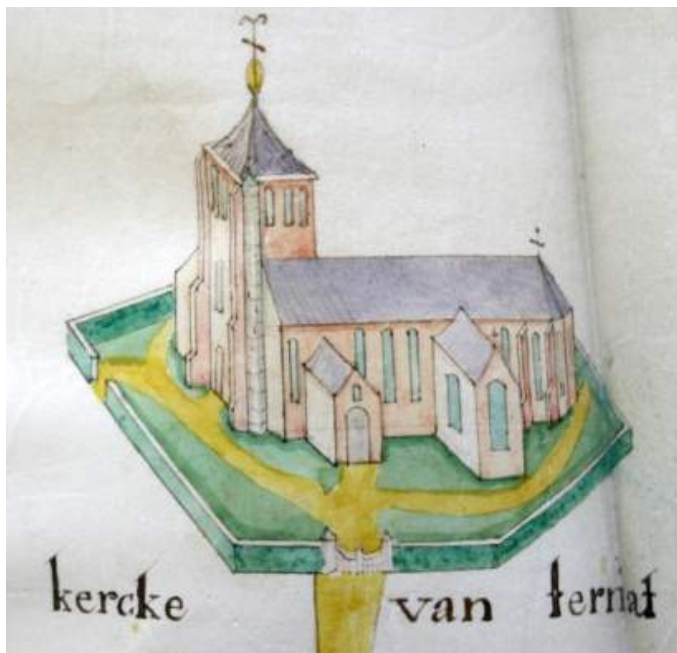 kercke van ternat